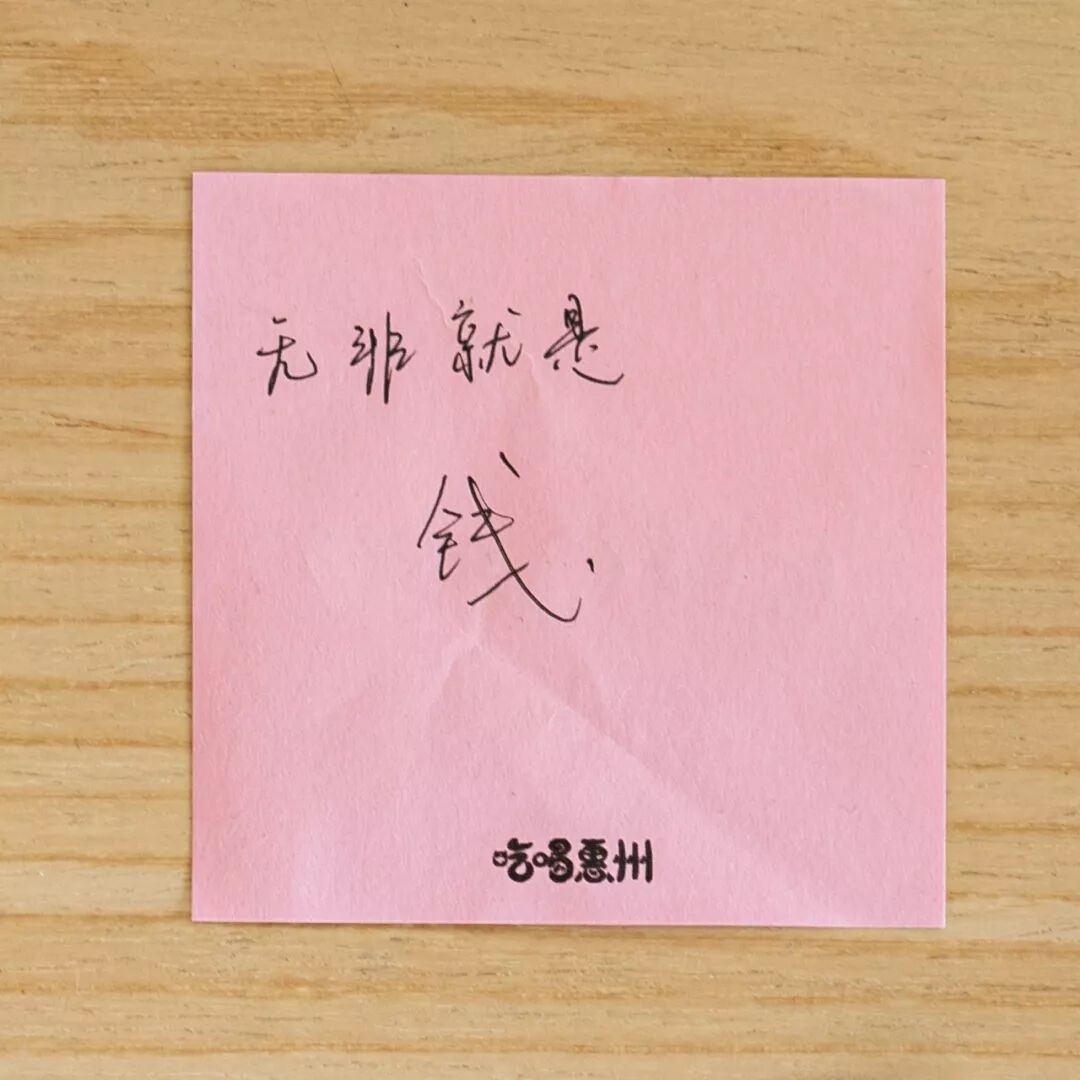 无非就是
钱.
吃喝惠州